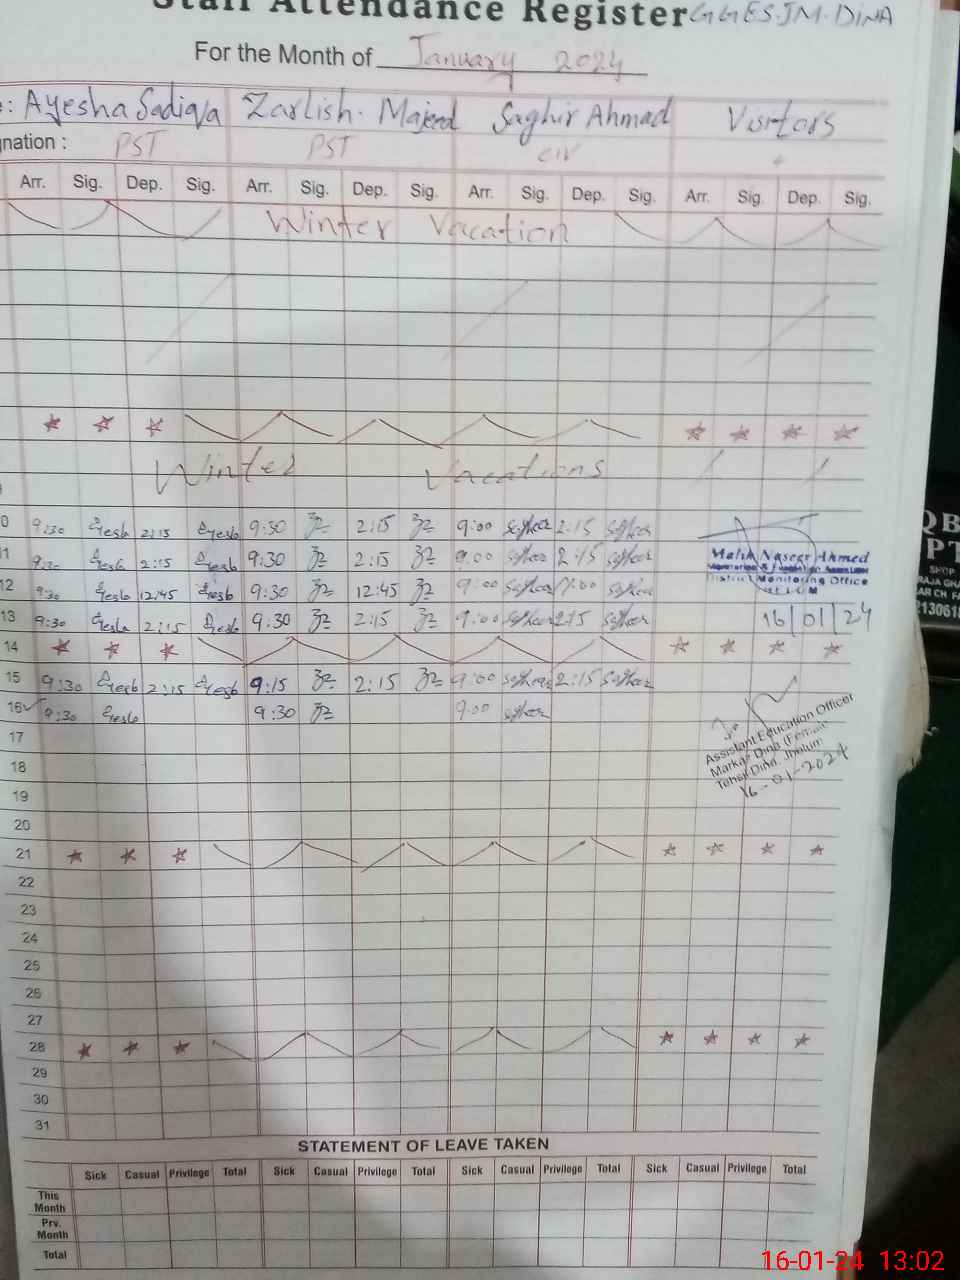 Staff Attendance Register GGES.JM.DINA
For the Month of January 2024
: Ayesha Sadiqa Zarlish. Majeed Saghir Ahmad Visitors
gnation : PST PST CIV
Arr. Sig. Dep. Sig. Arr. Sig. Dep. Sig. Arr. Sig. Dep. Sig. Arr. Sig. Dep. Sig.
Winter Vacation
Winter Vacations
0 9:30 2:15 9:30 2:15 9:00 2:15
1 9:30 2:15 9:30 2:15 9:00 2:45 Malik Naseer Ahmed
12 9:30 12:45 9:30 12:45 9:00 District Monitoring Office
13 9:30 2:15 9:30 2:15 9:00 2:15 16/01/24
14
15 9:30 2:15 9:15 2:15 9:00 2:15
16 9:30 9:30 9:00
17 Assistant Education Officer
18 Markaz Dina (Female)
19 Tehsil Dina, Jhelum
16-01-2024
20
21
22
23
24
25
26
27
28
29
30
31
STATEMENT OF LEAVE TAKEN
Sick Casual Privilege Total Sick Casual Privilege Total Sick Casual Privilege Total Sick Casual Privilege Total
This Month
Prv. Month
Total
QB
PT
SHOP
RAJA GHA
AR CH. FA
213061
16-01-24 13:02